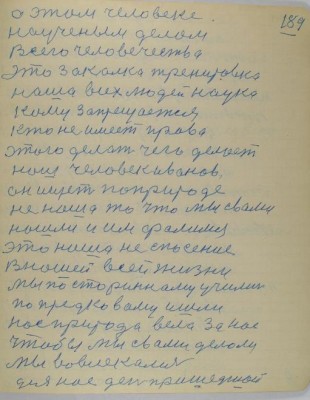 о этом человеке.
189
научеными делом
всего человечества
Это закалка тренировка
наша вих людей наука
кому запрещается
кто не имеет права
этого делать чего делает
наш человек иванов,
он ищет по природе
не наша то что мы с вами
нашли и им
Это наша не спасение
в нашей всей жизни
мы по старинному училис
по предковому шли
нас природа вела за нас
чтобы мы с вами делали
мы вовлекалис
для нас ден пришедшой